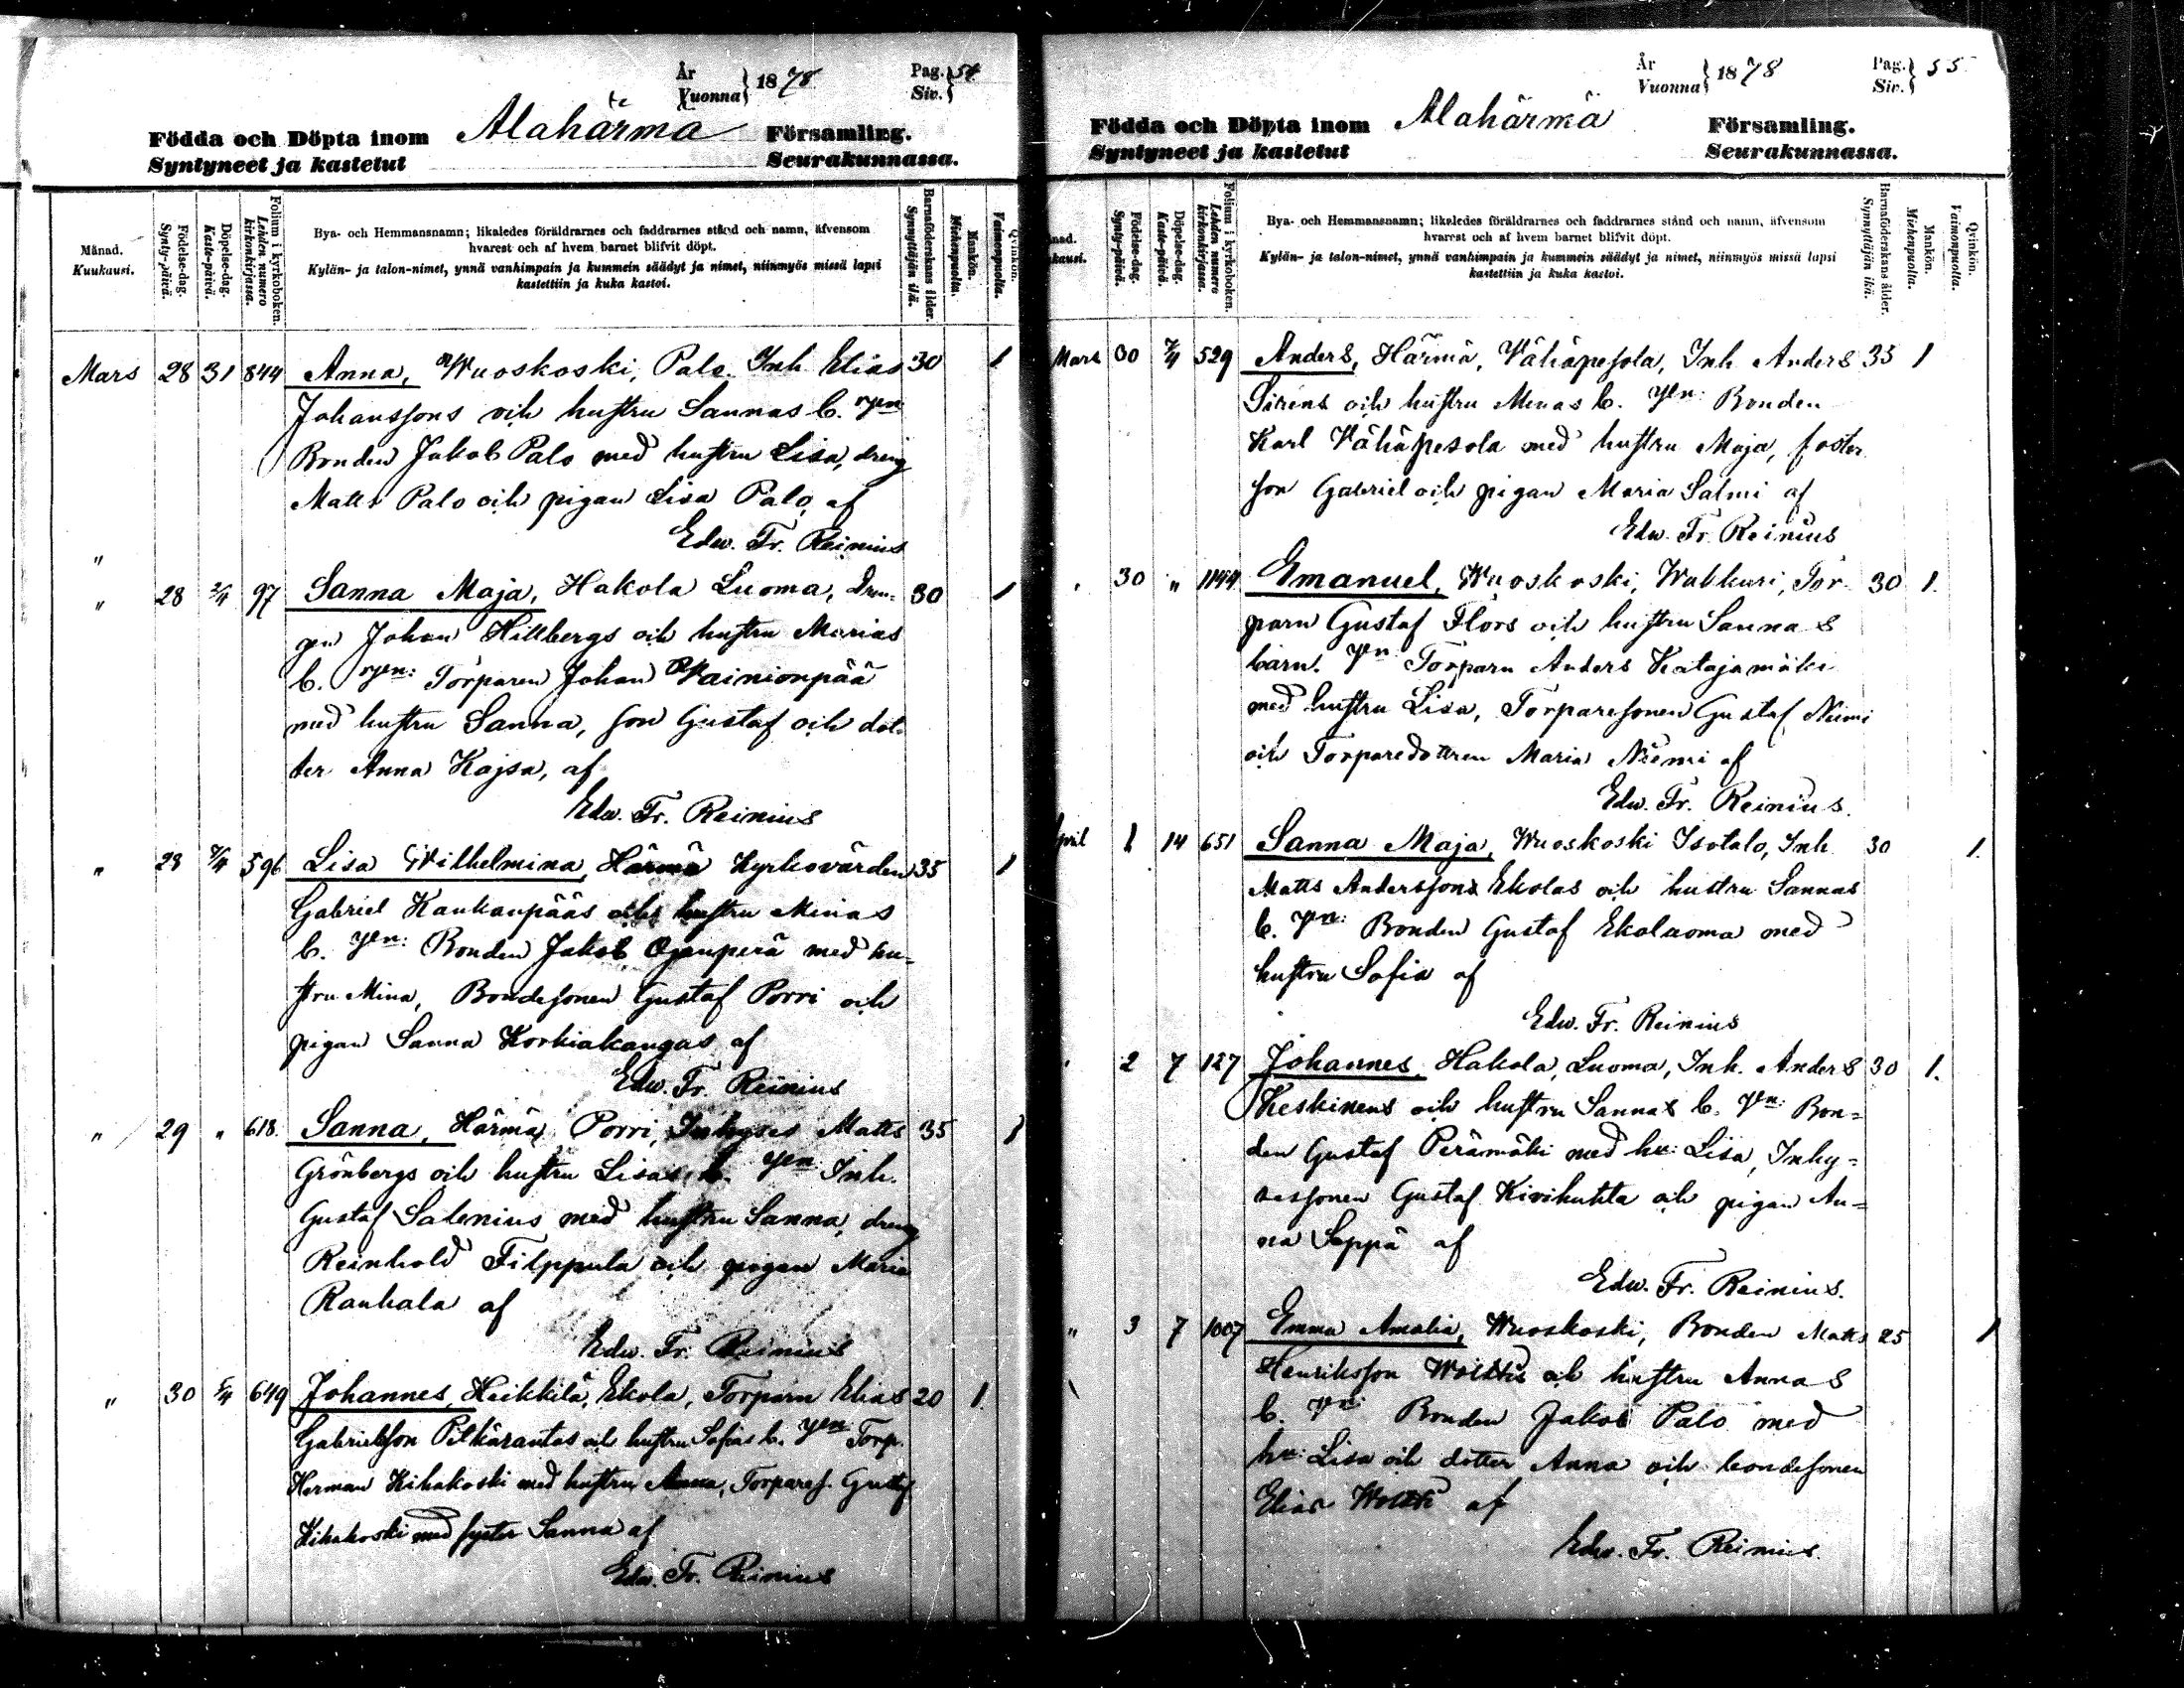 År
Vuonna 1878 Pag. Siv. 54
Födda och Döpta inom Alahärmä Församling.
Syntyneet ja kastetut Seurakunnassa.
Månad. Kuukausi.
Födelse-dag. Synty-päivä.
Döpelse-dag. Kaste-päivä.
Folium i kyrkoboken. Lehden numero kirkonkirjassa.
Bya- och Hemmansnamn; likaledes föräldrarnes och faddrarnes stånd och namn, äfvensom
hvarest och af hvem barnet blifvit döpt.
Kylän- ja talon-nimet, ynnä vanhimpain ja kummein säädyt ja nimet, niinmyös missä lapsi
kastettiin ja kuka kastoi.
Barnaföderskans ålder. Synnyttäjän ikä.
Mankön. Miehenpuolta.
Qvinkön. Vaimonpuolta.
Mars 28 31 844 Anna, Wuoskoski, Palo. Inh Elias 30 1
Johanssons och hustru Sannas b.
Bonden Jakob Palo med hustru Lisa, dreng
Matts Palo och pigan Lisa Palo, af
Edw. Fr. Reinius
"
" 28 2/4 97 Sanna Maja, Hakola Luoma, Dren= 30 1
gen Johan Hillbergs och hustru Marias
b. Torparen Johan Wainionpää
med hustru Sanna, son Gustaf och dot=
ter Anna Kajsa, af
Edw. Fr. Reinius
" 28 7/4 596 Lisa Wilhelmina, Härmä Kyrkovärden 35 1
Gabriel Kankaupääs och hustru Minas
b. Bonden Jakob Ojanperä med hu=
stru Mina, Bondesonen Gustaf Porri och
pigan Sanna Korkiakangas af
Edw. Fr. Reinius
" 29 " 618. Sanna, Härmä, Porri, Inhyses Matts 35 1
Grönbergs och hustru Lisas b. Inh.
Gustaf Salenius med hustru Sanna, dreng
Reinhold Filppula och pigan Maria
Rauhala af
Edw. Fr. Reinius
" 30 5/4 649 Johannes, Heikkilä, Ekola, Torparn Elias 20 1.
Gabrielsson Pitkärantas och hustru Sofias b. Torp.
Herman Kihakoski med hustru Anna, Torpares. Gustaf
Kihakoski med syster Sanna af
Edw. Fr. Reinius
År
Vuonna 1878 Pag. Siv. 55
Födda och Döpta inom Alahärmä Församling.
Syntyneet ja kastetut Seurakunnassa.
Födelse-dag. Synty-päivä.
Döpelse-dag. Kaste-päivä.
Folium i kyrkoboken. Lehden numero kirkonkirjassa.
Bya- och Hemmansnamn; likaledes föräldrarnes och faddrarnes stånd och namn, äfvensom
hvarest och af hvem barnet blifvit döpt.
Kylän- ja talon-nimet, ynnä vanhimpain ja kummein säädyt ja nimet, niinmyös missä lapsi
kastettiin ja kuka kastoi.
Barnaföderskans ålder. Synnyttäjän ikä.
Mankön. Miehenpuolta.
Qvinkön. Vaimonpuolta.
Mars 30 7/4 529 Anders, Härmä, Vähäpesola, Inh Anders 35 1
Sirens och hustru Minas b. Bonden
Karl Vähäpesola med hustru Maja, foster
son Gabriel och pigan Maria Salmi af
Edw. Fr. Reinius
30 " 1144 Emanuel, Wuoskoski, Walkuri, Tor 30 1.
parn Gustaf Flors och hustru Sannas
barn. Torparn Anders Katajamäki
med hustru Lisa, Torparesonen Gustaf Niemi
och Torparedottren Maria Niemi af
Edw. Fr. Reinius.
April 1 14 651 Sanna Maja, Wuoskoski Isotalo, Inh 30 1.
Matts Anderssons Ekolas och hustru Sannas
b. Bonden Gustaf Ekoluoma med
hustru Sofia af
Edw. Fr. Reinius
2 7 127 Johannes, Hakola, Luoma, Inh. Anders 30 1.
Keskinens och hustru Sannas b. Bon=
den Gustaf Perämäki med hu: Lisa, Inhy=
sessonen Gustaf Kivihuhta och pigan An=
na Seppä af
Edw. Fr. Reinius.
" 3 7 1007 Emma Amalia, Wuoskoski, Bonden Matts 25 1
Henriksson och hustru Annas
b. Bonden Jakob Palo med
hu: Lisa och dotter Anna och bondesonen
Elias af
Edw. Fr. Reinius.